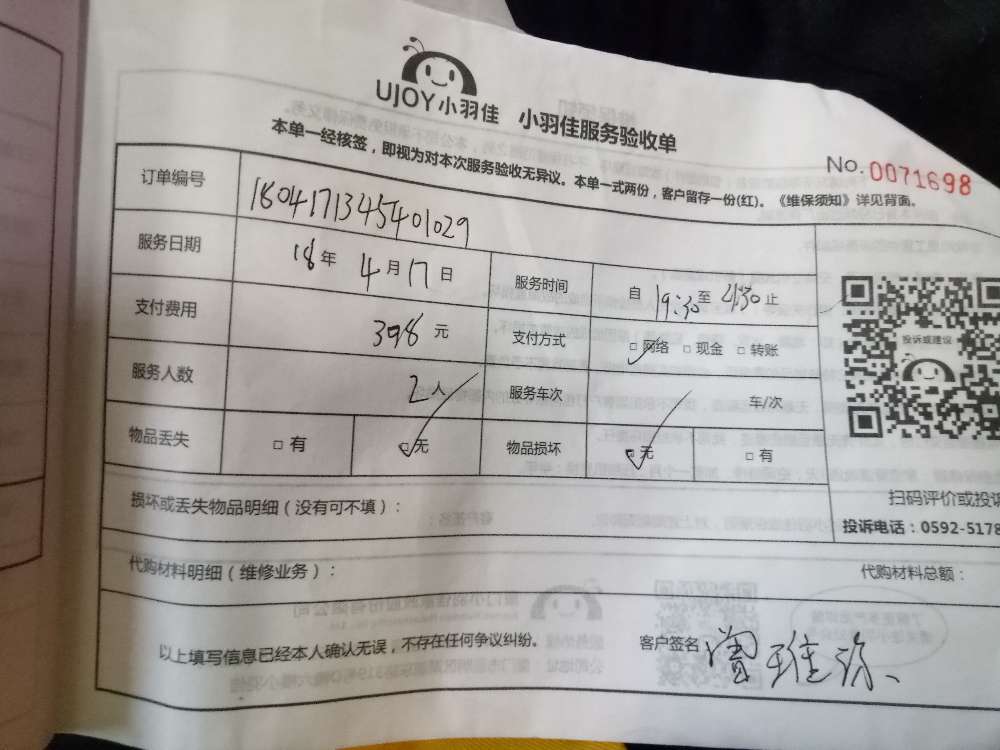 UJOY小羽佳 小羽佳服务验收单
本单一经核签，即视为对本次服务验收无异议。本单一式两份，客户留存一份(红)。《维保须知》详见背面。
No.0071698
订单编号 1804171345401029
服务日期 18年4月17日 服务时间 自19:30至21:30止
支付费用 398元 支付方式 □网络 □现金 □转账
服务人数 2人 服务车次 车/次
物品丢失 □有 □无 物品损坏 □无 □有
投诉或建议
扫码评价或投诉
投诉电话：0592-5178
损坏或丢失物品明细（没有可不填）：
代购材料明细（维修业务）： 代购材料总额：
以上填写信息已经本人确认无误，不存在任何争议纠纷。 客户签名